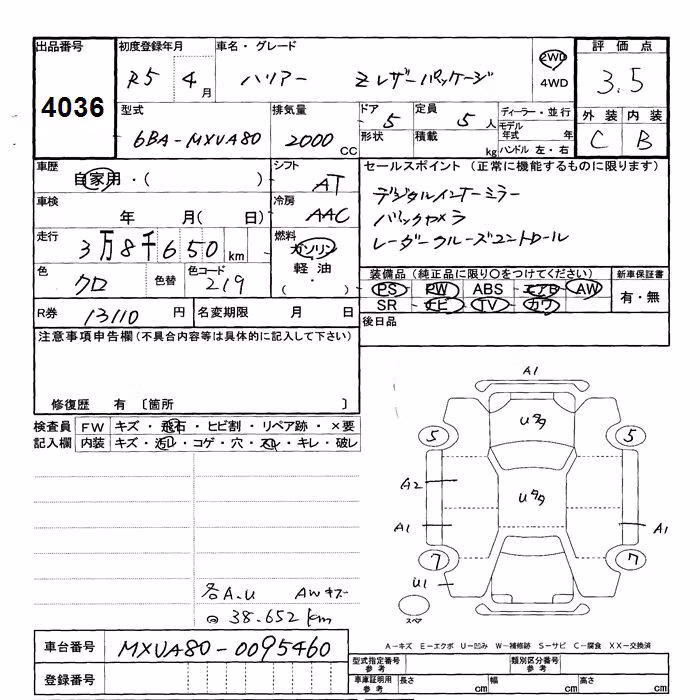 出品番号 初度登録年月 車名・グレード 評価点
4036 R5 4月 ハリアー Zレザーパッケージ 2WD 4WD 3.5
型式 排気量 ドア 定員 ディーラー・並行 外装 内装
6BA-MXUA80 2000 CC 5 5人 モデル年式 年 C B
形状 積載 kg ハンドル 左・右
車歴 自家用・( ) シフト AT セールスポイント (正常に機能するものに限ります)
車検 年 月( 日) 冷房 AAC デジタルインナーミラー
バックカメラ
走行 3万8千650km 燃料 ガソリン レーダークルーズコントロール
軽油・( )
色 クロ 色替 色コード 219 装備品 (純正品に限り○をつけてください) 新車保証書
PS PW ABS エアB AW 有・無
SR ナビ TV カワ
R券 13110円 名変期限 月 日 後日品
注意事項申告欄 (不具合内容等は具体的に記入して下さい)
修復歴 有 〔箇所 〕
検査員 FW キズ・飛石・ヒビ割・リペア跡・×要
記入欄 内装 キズ・汚レ・コゲ・穴・スレ・キレ・破レ
A1
Uタタ
5 5
A2 Uタタ
A1 A1
7 7
U1
スペア
各A.U AWキズ
@ 38.652km
A-キズ E-エクボ U-凹み W-補修跡 S-サビ C-腐食 XX-交換済
車台番号 MXUA80-0095460
登録番号
型式指定番号 参考 類別区分番号 参考
車庫証明用 参考 長さ cm 幅 cm 高さ cm